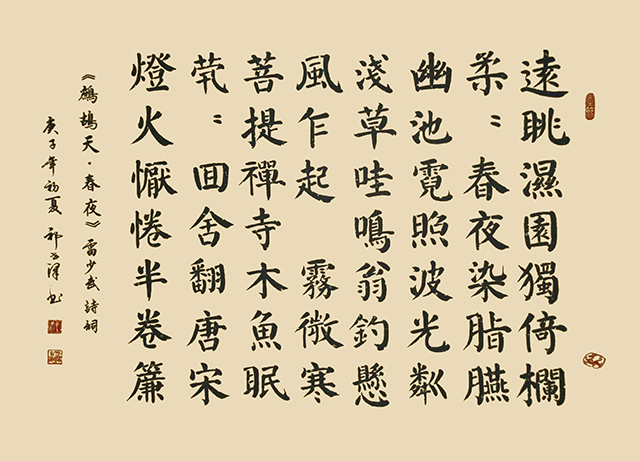 遠眺濕園獨倚欄
柔〻春夜染脂臙
幽池霓照波光粼
淺草哇鳴翁釣懸
風乍起 霧微寒
菩提禪寺木魚眠
茕〻回舍翻唐宋
燈火懨惓半卷簾
《鷓鴣天·春夜》雷少武詩詞
庚子年初夏 祁